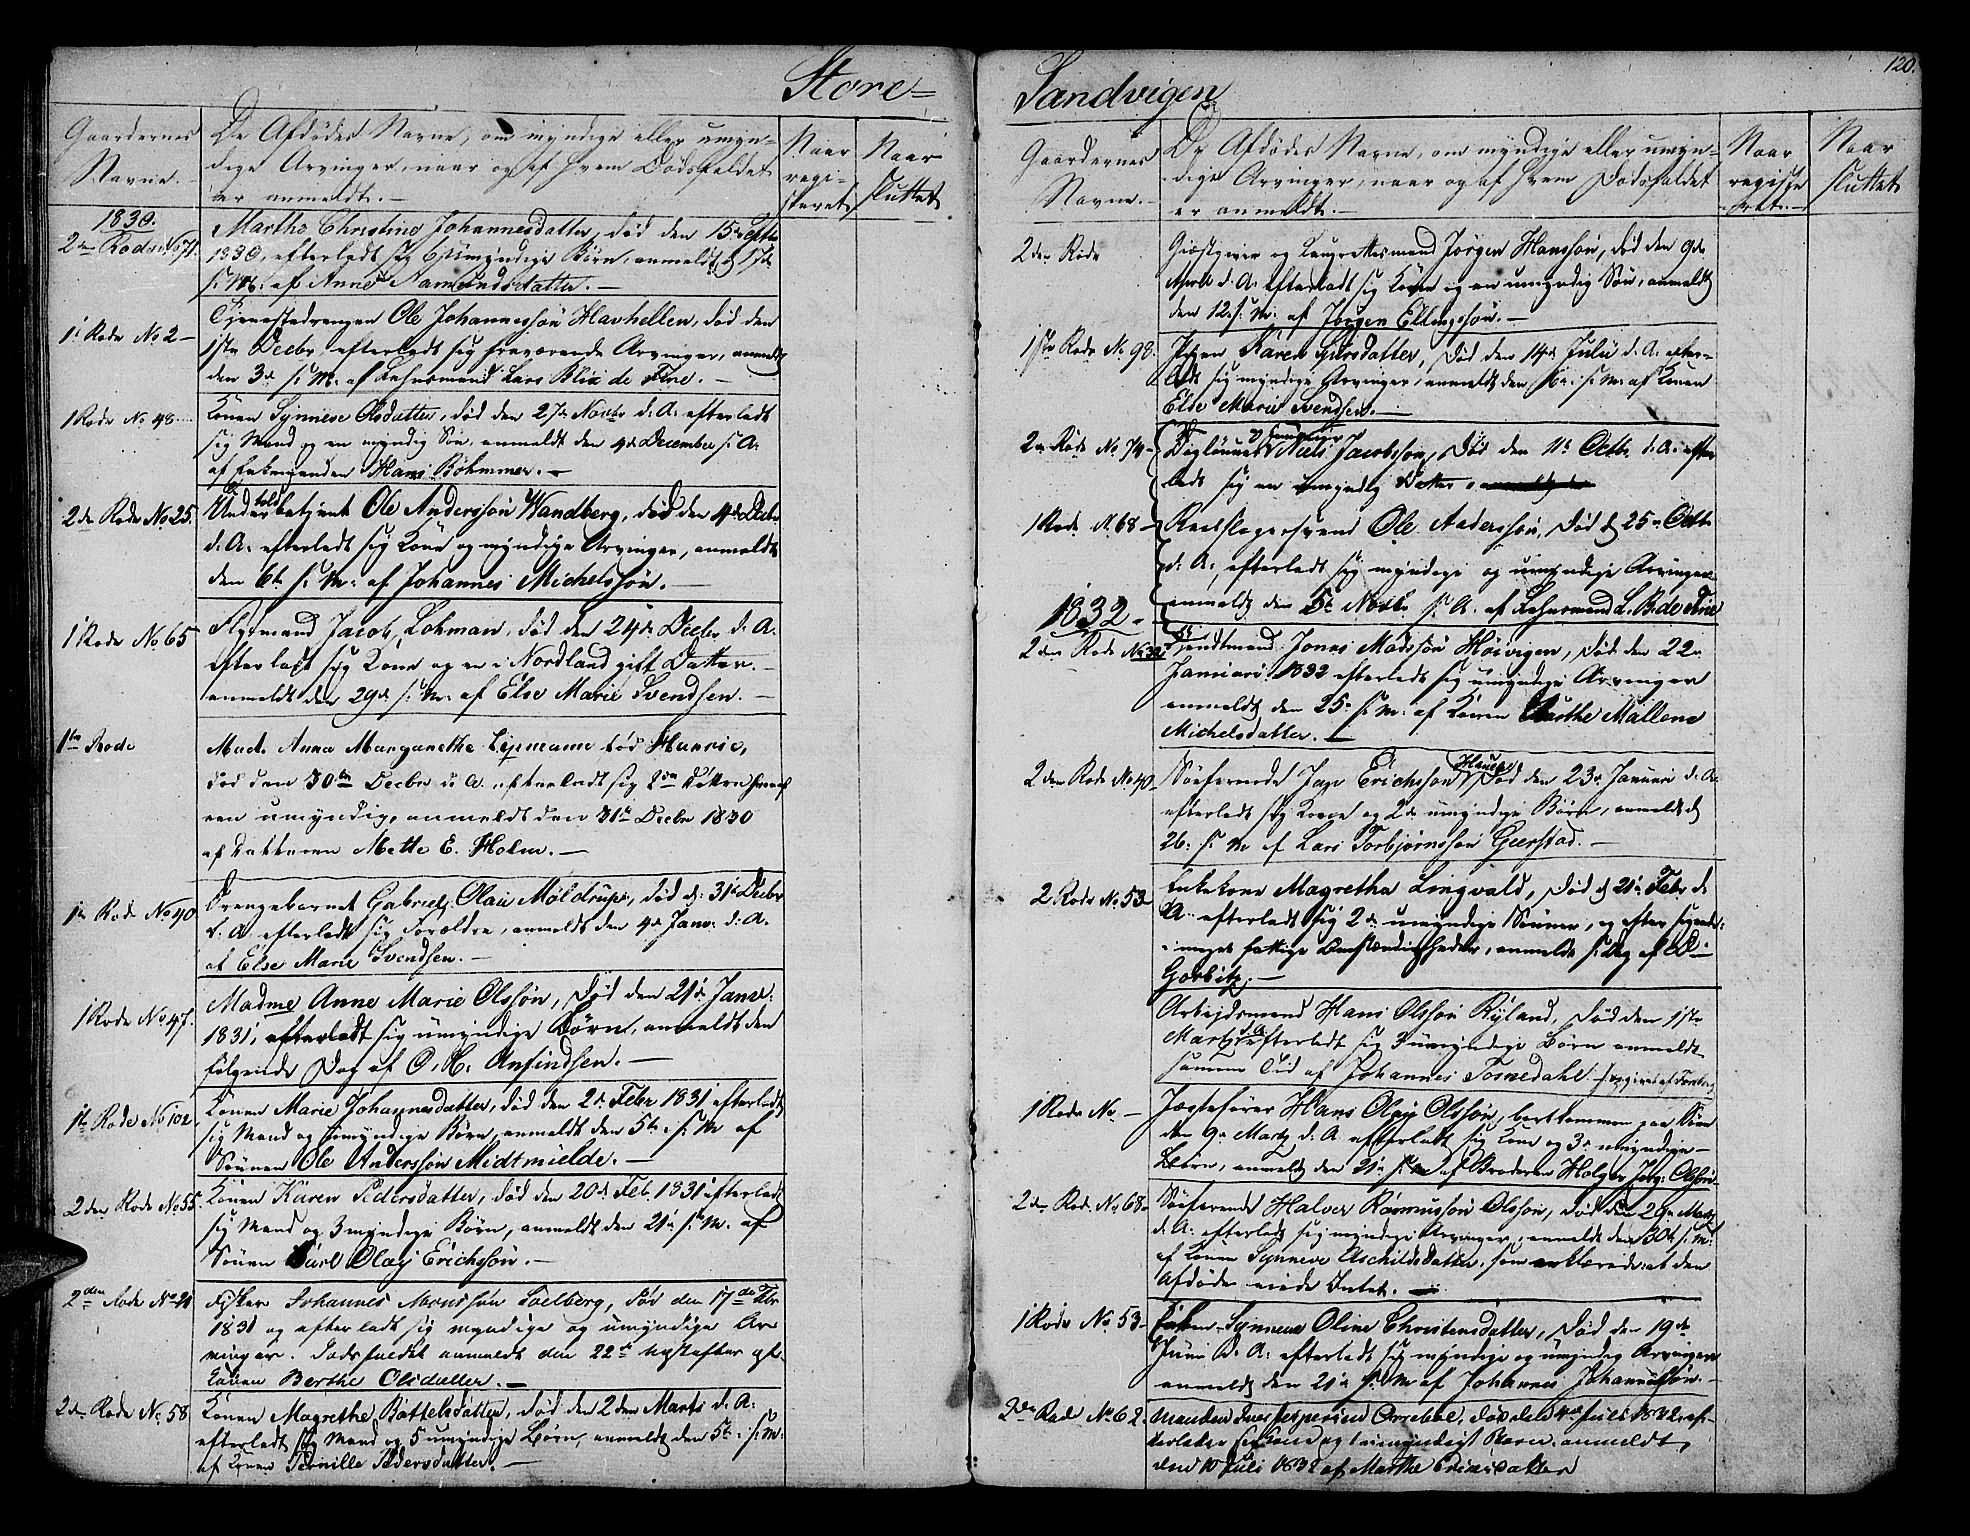 Store=
Gaardernes
Navne.
De Afdødes Navne, om myndige eller umyn-
dige Arvinger, naar og af hvem Dødsfaldet
er anmeldt.
Naar
regi-
steret
Naar
sluttet
1830.
2den Rode No 71.
Marthe Christine Johannesdatter, død den 15de Septbr
1830, efterladt sig umyndige Børn, anmeldt
s. M. af Anne Aamundsdatter.
1ste Rode No 2
Tjenestedrengen Ole Johannessøn Havhellen, død den
1ste Decbr, efterladt sig fraværende Arvinger, anmeldt
den 3de s. M. af Lehnsmand Lars Blix de Fine.
1 Rode No 48
Konen Synneve Olsdatter, død den 27de Novbr d. A. efterladt
sig Mand og en myndig Søn, anmeldt den 4de December s. A.
af Enkemanden Hans Bøhmmer.
2den Rode No 25.
Under toldbetjent Ole Anderssøn Wandberg, død den 4de Decbr
d. A. efterladt sig Kone og myndige Arvinger, anmeldt
den 6te s. M. af Johannes Michelssøn.
1 Rode No 65
Jacob Lohman, død den 24de Decbr d. A.
efterladt sig Kone og en i Nordland gift Datter.
anmeldt den 29de s. M. af Else Marie Svendsen.
1ste Rode
Mad. Anna Margarethe Lipmann fød Hanrie,
død den 30te Decbr d. A. efterladt sig 2de Døttre hvoraf
een umyndig, anmeldt den 31te Decbr 1830
af Datteren Mette E. Holm.
1ste Rode No 40
Drengebarnet Gabriel Olai Møldrup, død d. 31te Decbr
f. A. efterladt sig Forældre, anmeldt den 4de Janr. d. A.
af Else Marie Svendsen.
1 Rode No 47.
Madme Anne Marie Olssøn, død den 21de Janr.
1831, efterladt sig umyndige Børn, anmeldt den
følgende Dag af C. H. Anfindsen.
1ste Rode No 102
Konen Marie Johannesdatter, død den 2de Febr 1831 efterladt
sig Mand og umyndige Børn, anmeldt den 5te s. M. af
Sønnen Ole Anderssøn Midtmielde.
2den Rode No 55.
Konen Karen Pedersdatter, død den 20de Feb. 1831 efterladt
sig Mand og 3 myndige Børn, anmeldt den 21de s. M. af
Sønnen Carl Olay Erichssøn.
2den Rode No 21
Fisker Johannes Monssøn Soelberg, død den 17de Febr
1831 og efterladt sig myndige og umyndige Ar
vinger. Dødsfaldet anmeldt den 22de næstefter af
Konen Berthe Olsdatter.
2den Rode No 58
Konen Magrethe Bottelsdatter, død den 2den Marts d. A.
efterladt sig Mand og 5 umyndige Børn, anmeldt den 5te s. M.
af Konen Pernille Pedersdatter.
Sandvigen
120.
Gaardernes
Navne.
De Afdødes Navne, om myndige eller umyn=
dige Arvinger, naar og af hvem Dødsfaldet
er anmeldt.
Naar
registe
ret.
Naar
sluttet
2den Rode
Giæstgiver og Laugrettesmand Jørgen Hanssøn, død den 9de
April d. A. efterladt sig Kone og en umyndig Søn, anmeldt
den 12. s. M. af Jørgen Ellingssøn.
1ste Rode No 98.
Karen Larsdatter, død den 14de Julii d. A. efter-
ladt sig myndige Arvinger, anmeldt den 16de s. M. af Konen
Else Marie Svendsen.
2de Rode No 74
Dagløner Niels Jacobsøn, død den 11te Octbr. d. A. efter
ladt sig en umyndig Datter
1 Rode No 68
Reebslagersvend Ole Anderssøn, død d. 25de Octbr
d. A., efterladt sig myndige og umyndige Arvinger
anmeldt den 5te Novbr. s. A. af Lehnsmand L. B. de Fine
1832
2den Rode No 32
Jonas Madssøn Høivigen, død den 22de
Januari 1832 efterladt sig umyndige Arvinger
anmeldt den 25de s. M. af Konen Marthe Mallene
Michelsdatter.
2den Rode No 40
Søefarende Erichssøn Hauge død den 23de Januari d. A.
efterladt sig Kone og 2de umyndige Børn, anmeldt d.
26. s. M af Lars Torbjørnssøn Geerstad.
2 Rode No 53
Enkekone Magretha Lingvald, død d. 21de Febr d.
A. efterladt sig 2de umyndige Sønner, og efter sigende
i meget fattige Omstændigheder, anmeldt s. Dag af
Gorbitz.
Arbeidsmand Hans Olssøn Ryland, død den 1ste
Marts d. A. efterladt sig 3 umyndige Børn anmeldt
samme Tid af Johannes Tosnedahl
1 Rode No
Jægtefører Hans Olay Olssøn, bortkommen paa Søen
den 9de Martz d. A. efterladt sig Kone og 3de umyndige
Børn, anmeldt den 21de s. M af Broderen Holger Jørg. Olssøn
2den Rode No 68
Søefarende Halvor Rasmussøn Olssøn, død den 29de Martz
d. A. efterladt sig myndige Arvinger, anmeldt den 30te s. M.
af Konen Synneve Aschildsdatter, som erklærede at den
Afdøde eiede Intet.
1 Rode No 53
Synneve Oline Christensdatter, død den 19de
Juni d. A. efterladt sig myndige og umyndig Arvinger
anmeldt den 21de s. M af Johannes Johannessøn.
2den Rode No 62.
Manden Jespersen død den 4de Juli 1832, ef-
terlader sig Kone og 1 umyndigt Barn, anmeldt,
den 10 Juli 1832 af Marthe Ericsdatter